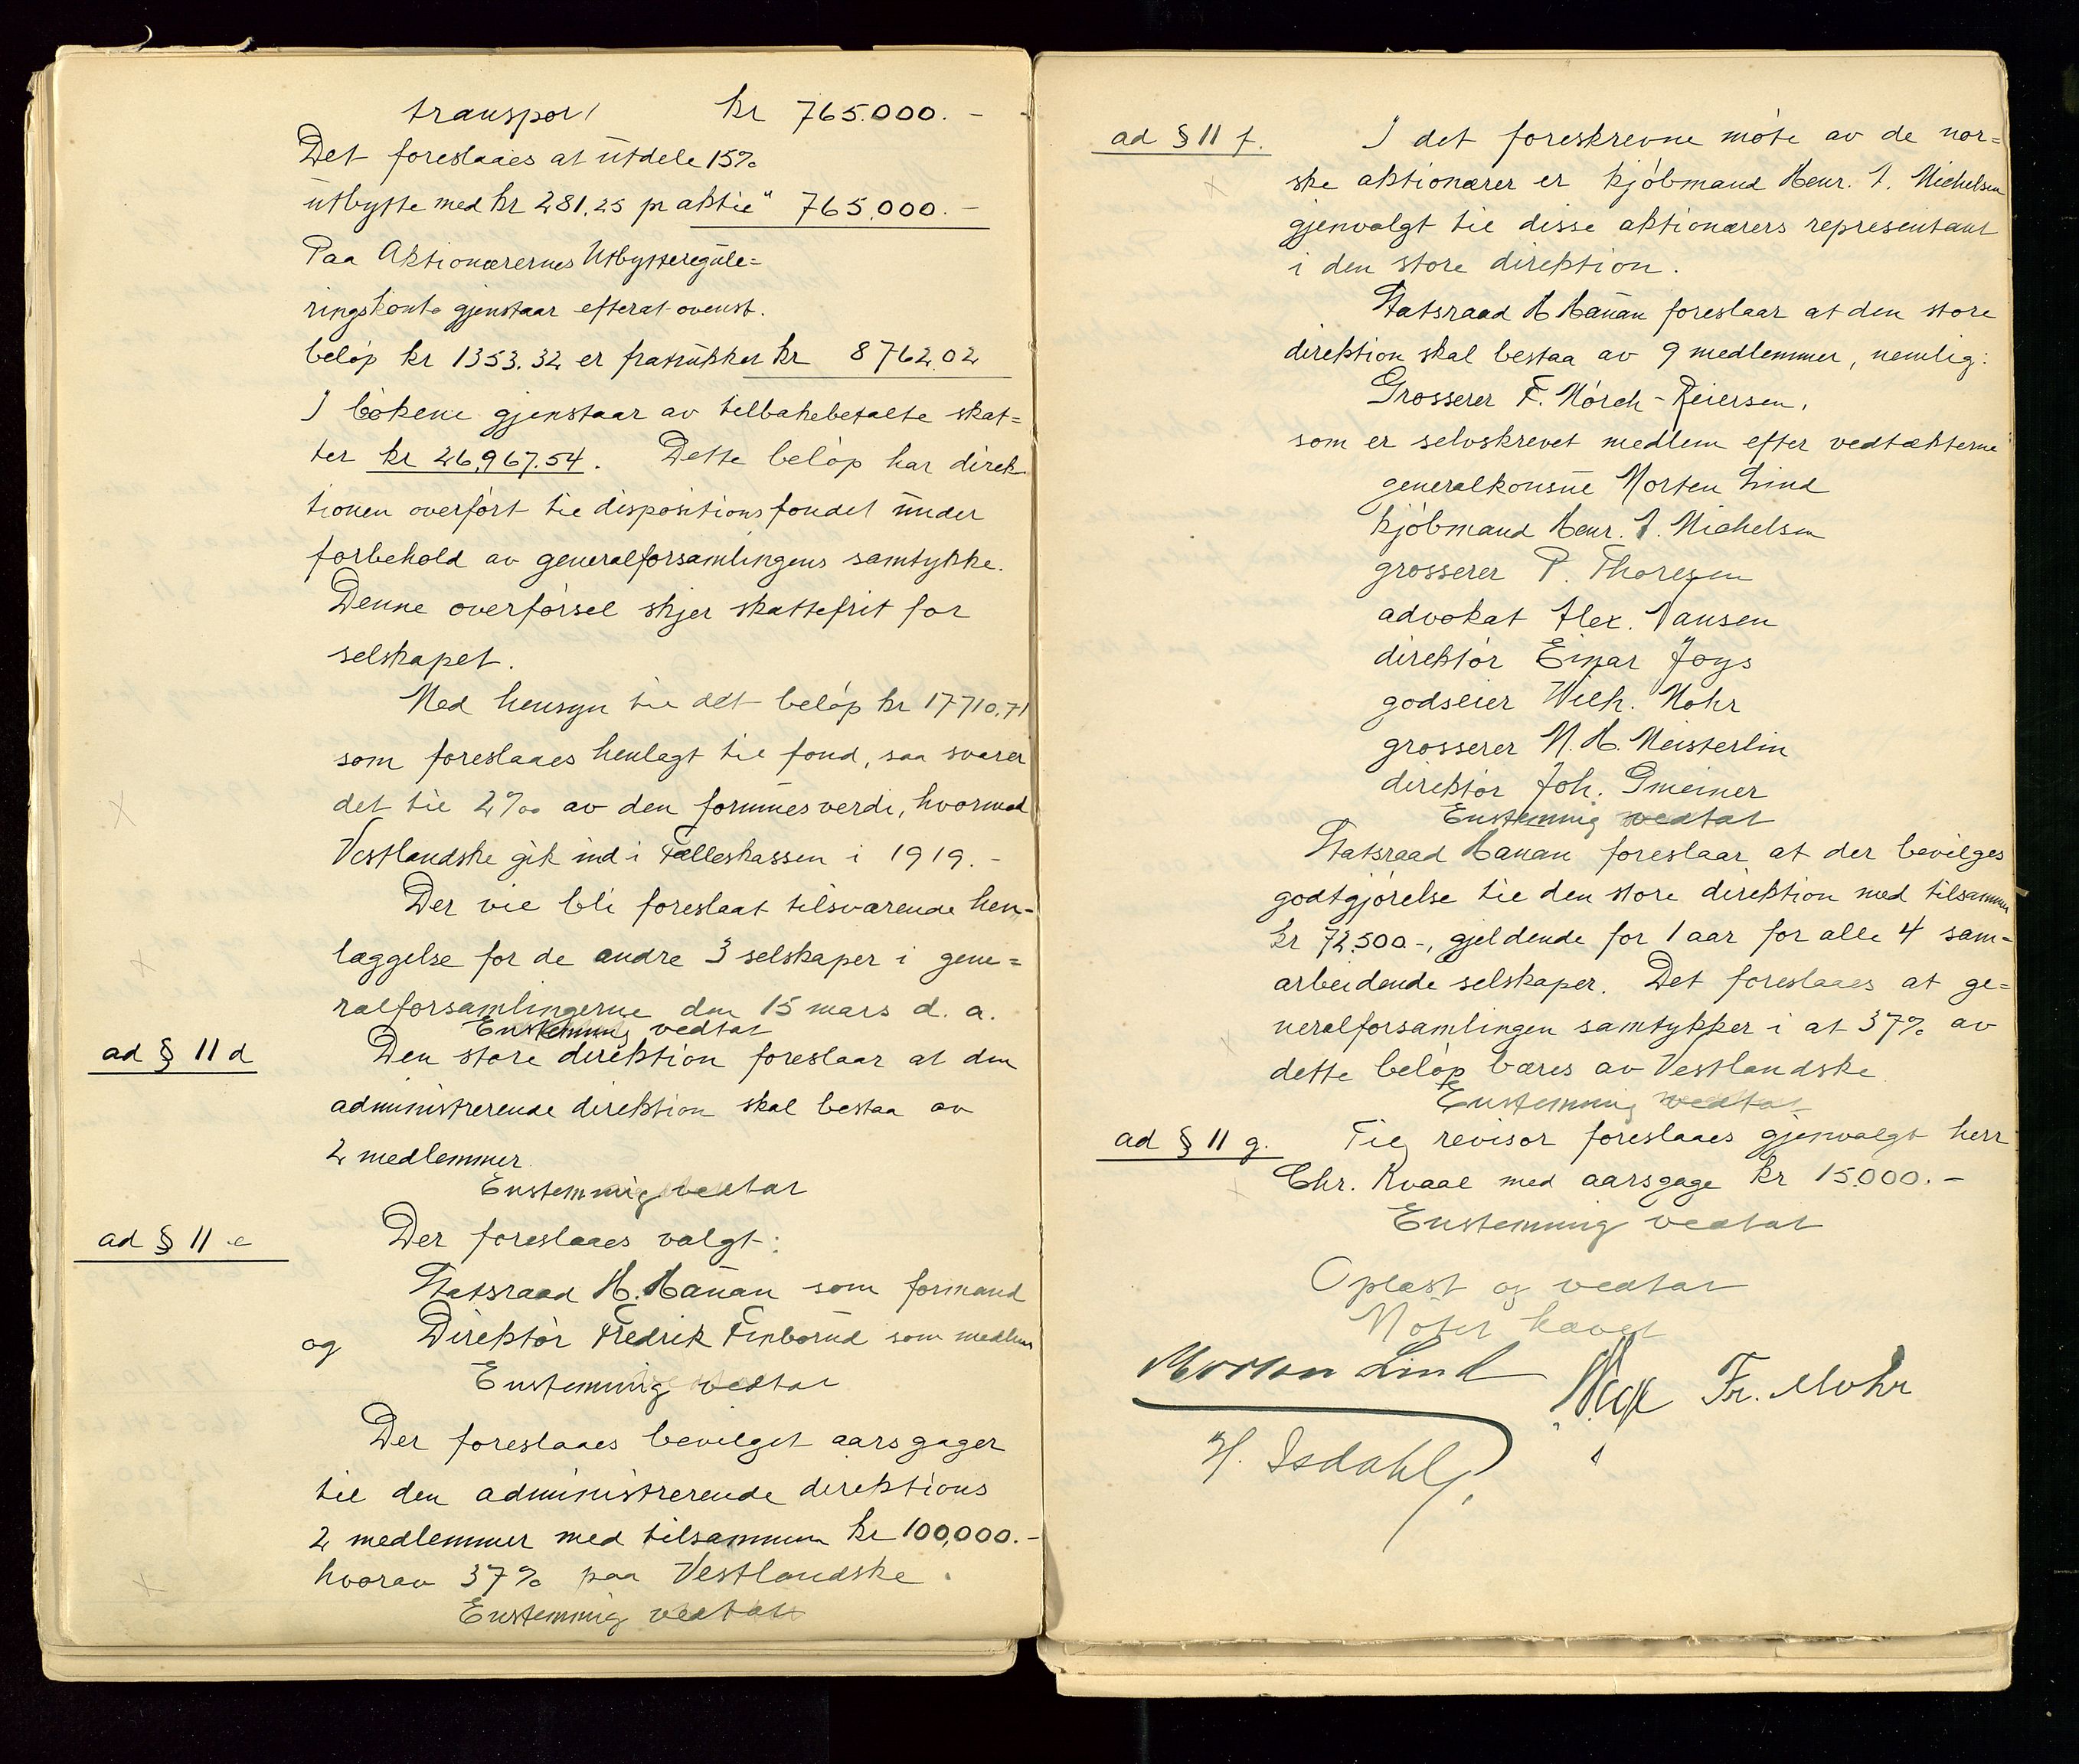 transport kr 765.000.-
Det foreslaaes at utdele 15%
utbytte med kr 281,25 pr aktie " 765,000.-
Paa Aktionærernes Utbytteregule=
ringskonto gjenstaar efterat ovenst.
beløp kr 1353.32 er fratrukket kr 8762.02
I bøkene gjenstaar av tilbakebetalte skat=
ter kr 26,967.54. Dette beløp har direk
tionen overført til dispositionsfondet under
forbehold av generalforsamlingens samtykke.
Denne overførsel skjer skattefrit for
selskapet.
Med hensyn til det beløp kr 17710.71
som foreslaaes henlagt til fond, saa svarer
det til 2‰ av den formues verdi, hvormed
Vestlandske gik ind i Fælleskassen i 1919.-
Der vil bli foreslaat tilsvarende hen-
læggelse for de andre 3 selskaper i gene=
ralforsamlingerne den 15 mars d. a.
Enstemmig vedtat
ad § 11 d Den store direktion foreslaar at den
administrerende direktion skal bestaa av
2 medlemmer.
Enstemmig vedtat
ad § 11 e Der foreslaaes valgt:
Statsraad H. Hauan som formand
og Direktør Fredrik Finborud som medlem
Enstemmig vedtat
Der foreslaaes bevilget aarsgager
til den administrerende direktions
2 medlemmer med tilsammen kr 100,000.-
hvorav 37% paa Vestlandske.
Enstemmig vedtat
ad § 11 f. I det foreskrevne møte av de nor=
ske aktionærer er kjøbmand Henr. J. Michelsen
gjenvalgt til disse aktionærers representant
i den store direktion.
Statsraad H Hauan foreslaar at den store
direktion skal bestaa av 9 medlemmer, nemlig:
Grosserer F. Mørch-Reiersen,
som er selvskrevet medlem efter vedtækterne
generalkonsul Morten Lind
kjøbmand Henr. J. Michelsen
grosserer P. Thoresen
advokat Alex. Nansen
direktør Einar Joys
godseier Wilh. Mohr
grosserer N. H. Meisterlin
direktør Joh. Gmeiner
Enstemmig vedtat
Statsraad Hauan foreslaar at der bevilges
godtgjørelse til den store direktion med tilsammen
kr 72.500-, gjeldende for 1 aar for alle 4 sam=
arbeidende selskaper. Det foreslaaes at ge=
neralforsamlingen samtykker i at 37% av
dette beløp bæres av Vestlandske
Enstemmig vedtat
ad § 11 g. Til revisor foreslaaes gjenvalgt herr
Chr. Kvaal med aarsgage kr 15.000.-
Enstemmig vedtat
Oplæst og vedtat
Møtet hævet
Morten Lind Fr. Mohr
H. Isdahl